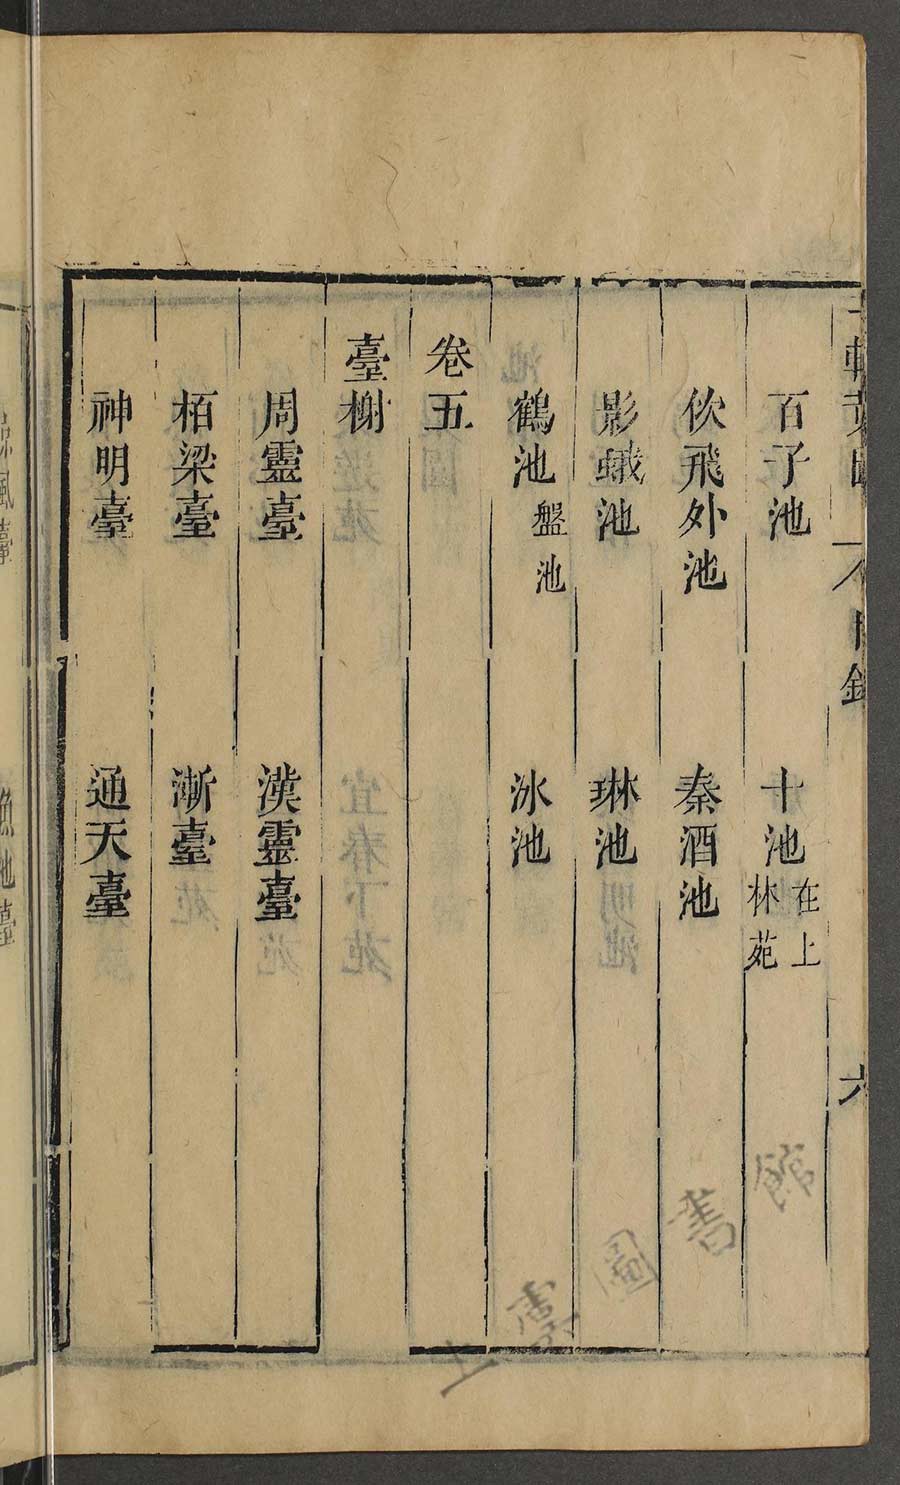 百子池 十池 在上林苑
佽飛外池 秦酒池
影蛾池 琳池
鶴池 盤池 冰池
卷五
臺榭
周靈臺 漢靈臺
栢梁臺 漸臺
神明臺 通天臺
涼風臺 魚池臺